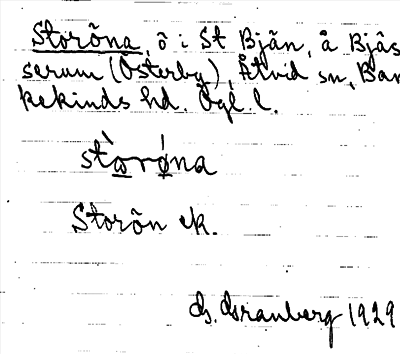 Storöna, ö i St Bjän, å Bjäs
serum (Österby), Åtvid sn, Ban
kekinds hd. Ögl. l.
stòrǿna
Storön ek.
G. Granberg 1929